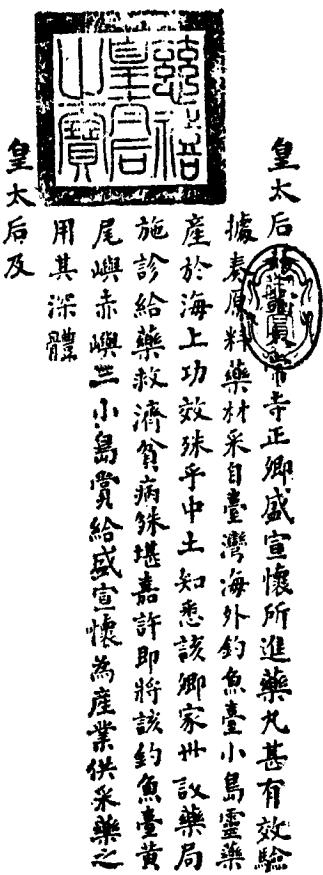 慈禧
皇后
之寶
皇太后常寺正卿盛宣懷所進藥丸甚有效驗
據奏原料藥材采自臺灣海外釣魚臺小島靈藥
產於海上功效殊乎中土知悉該卿家世設藥局
施診給藥救濟貧病殊堪嘉許即將該釣魚臺黃
尾嶼赤嶼三小島賞給盛宣懷為產業供采藥之
用其深體
皇太后及